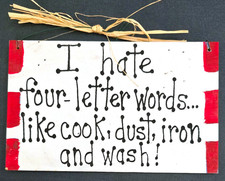 I hate
four-letter words...
like cook, dust, iron
and wash!